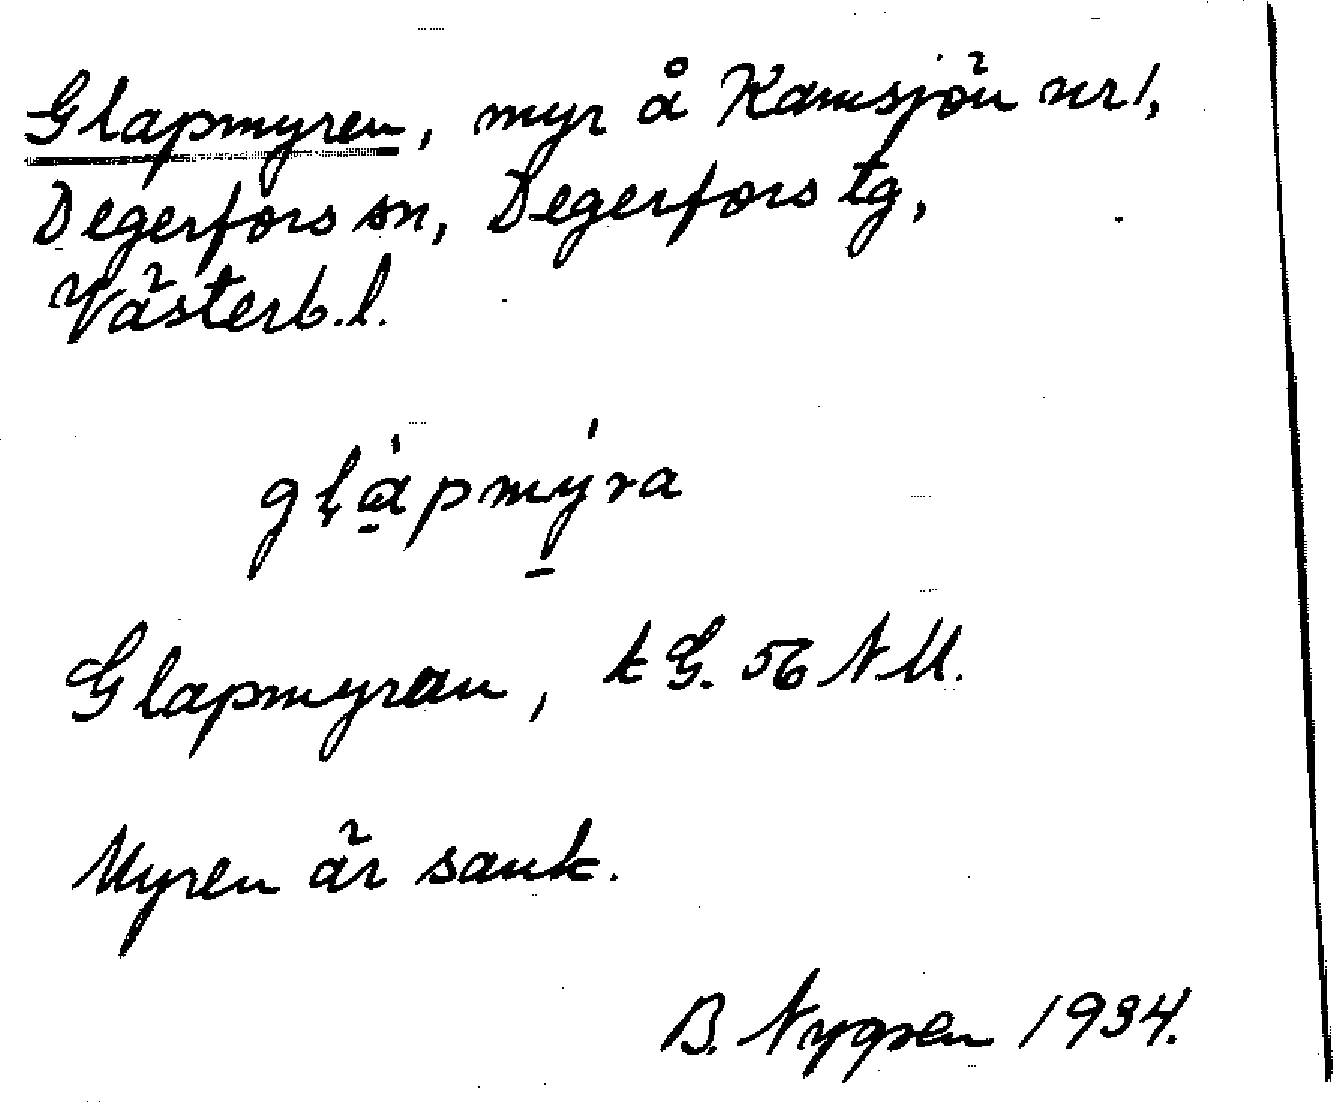 Glapmyren, myr å Kamsjön nr 1,
Degerfors sn, Degerfors tg,
Västerb. l.
gl̥a̱̍pmy̱̍ra
Glapmyran, k G. 56 NU.
Myren är sank.
B. Nygren 1934.